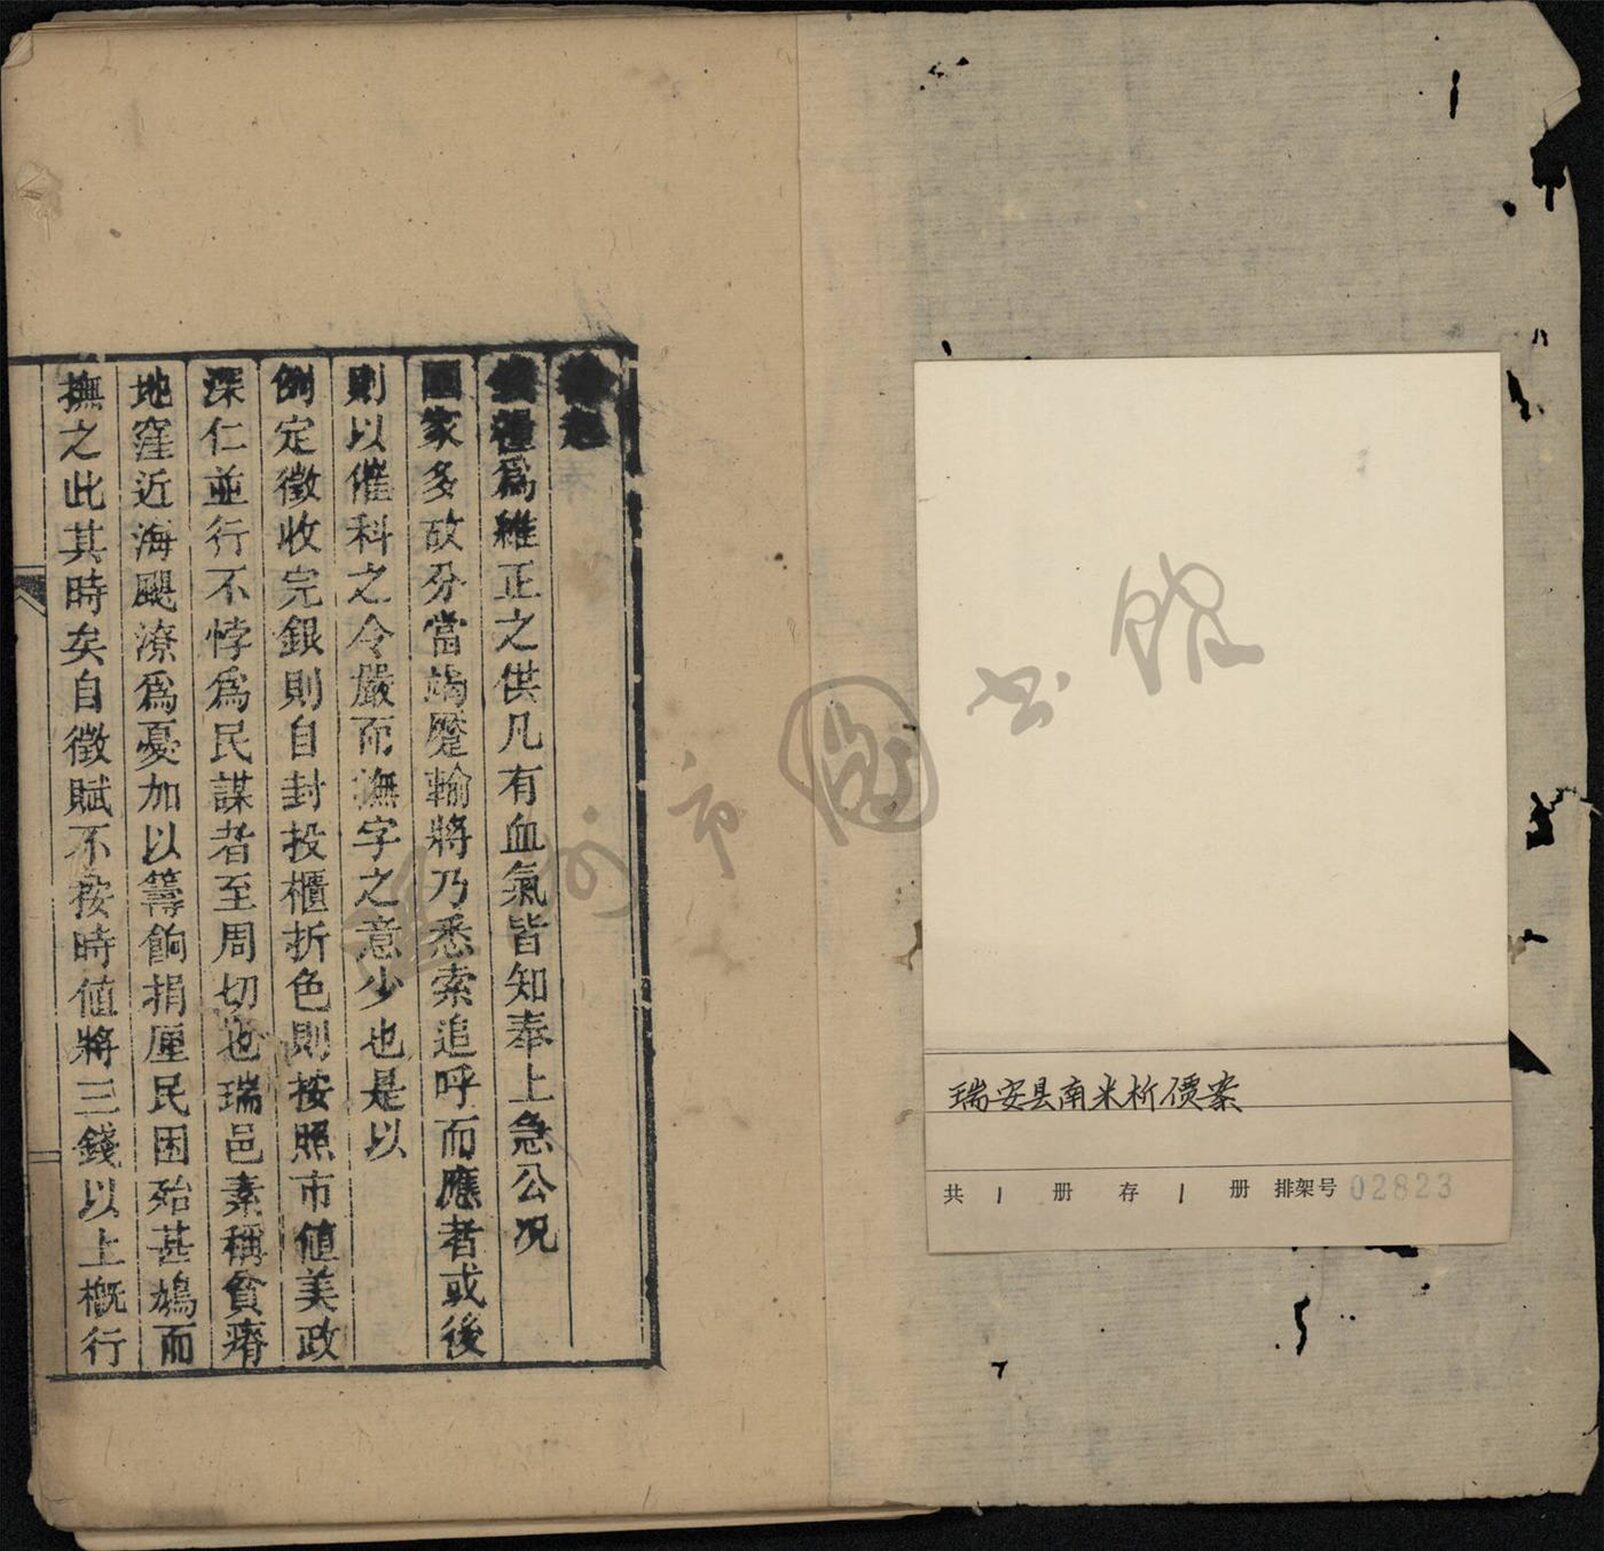 瑞安县南米折價案
共 1 册 存 1 册 排架号 02823
起
錢糧爲維正之供凡有血氣皆知奉上急公况
國家多故分當竭蹷輸將乃悉索追呼而應者或後
則以催科之令嚴而撫字之意少也是以
例定徵收完銀則自封投櫃折色則按照市値美政
深仁並行不悖爲民謀者至周切也瑞邑素稱貧瘠
地窪近海颶潦爲憂加以籌餉捐厘民困殆甚鳩而
撫之此其時矣自徵賦不按時値將三錢以上概行
温州市圖书館